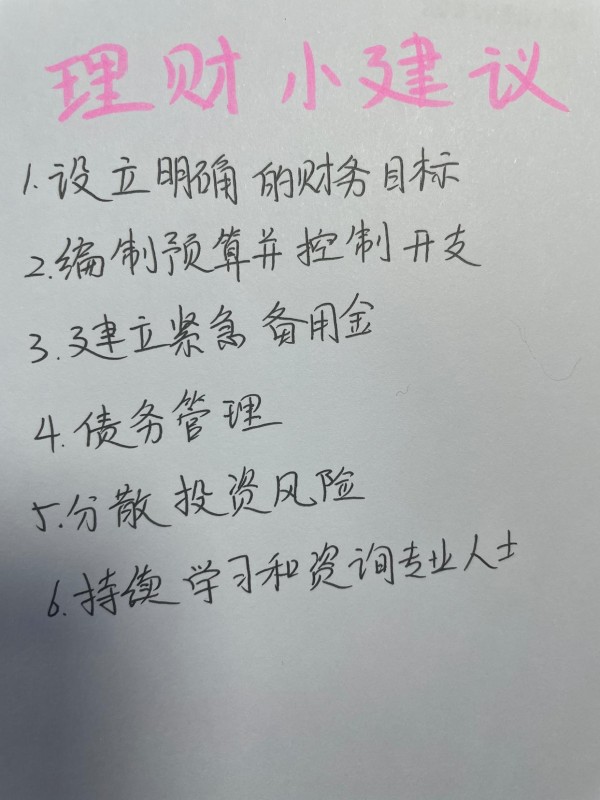 理财小建议
1.设立明确的财务目标
2.编制预算并控制开支
3.建立紧急备用金
4.债务管理
5.分散投资风险
6.持续学习和资询专业人士